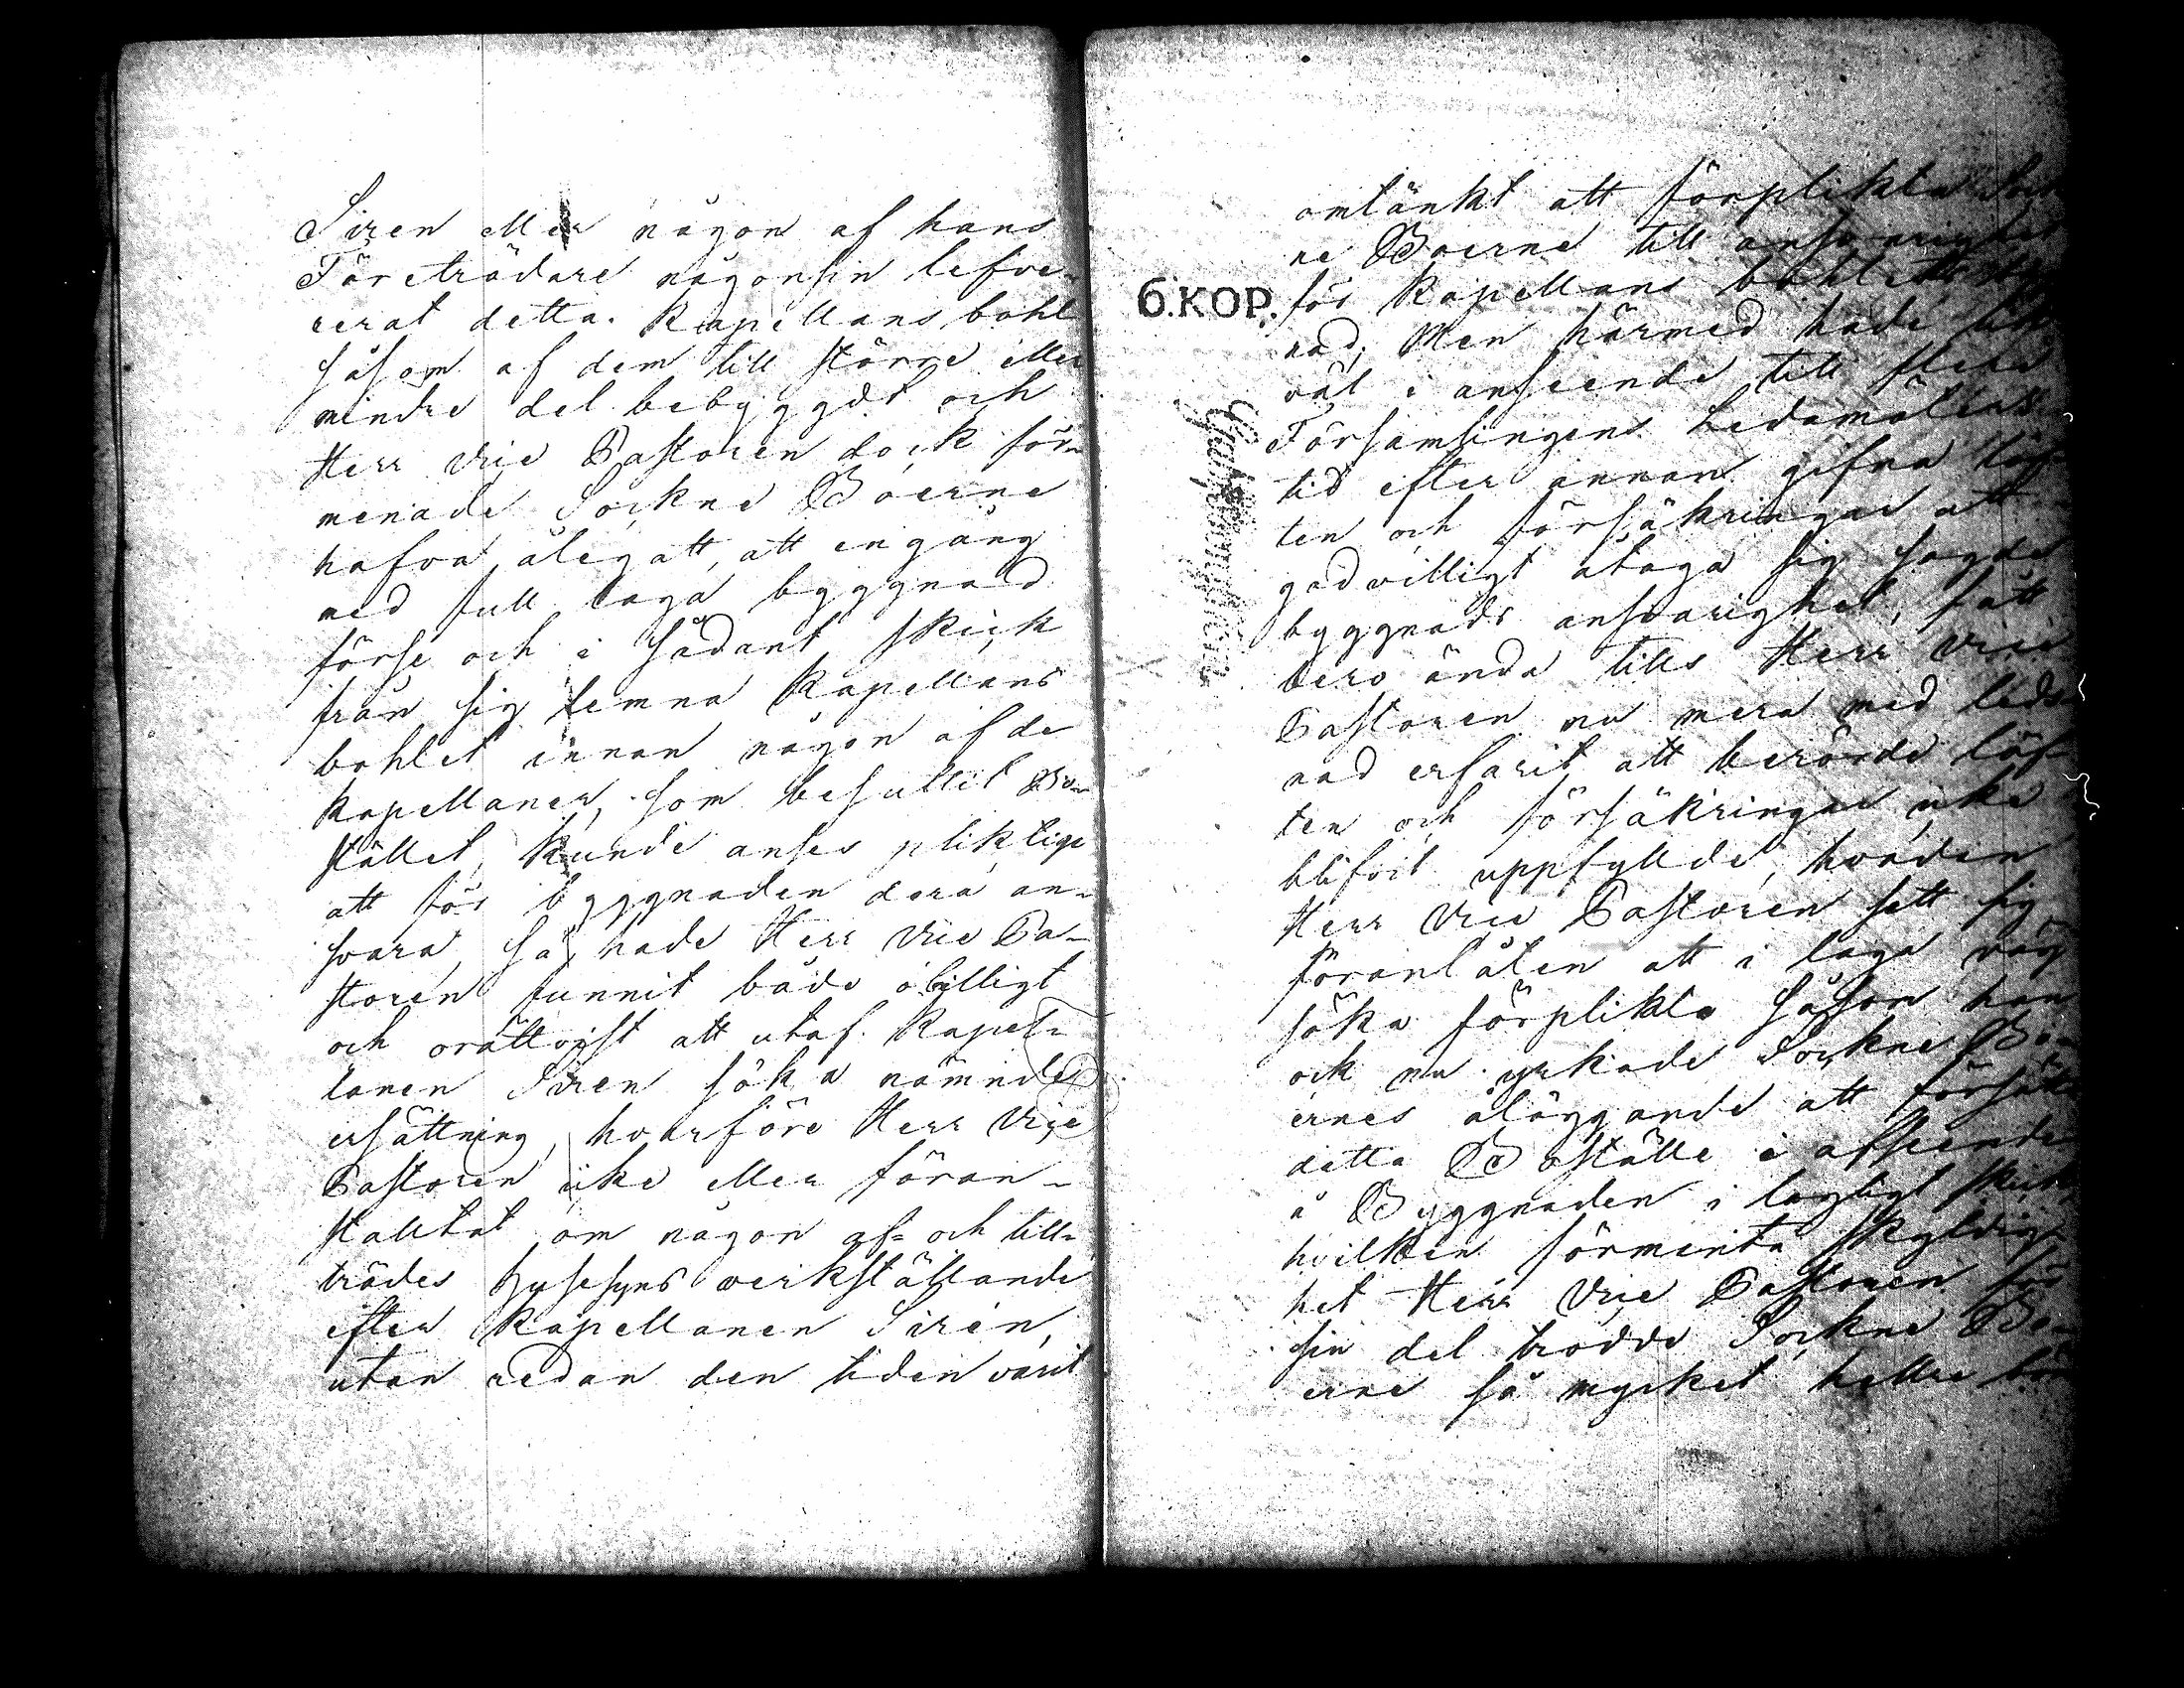 Siren eller någon af hans
Företrädare någonsin lefve-
rerat detta Kapellans bohl
såsom af dem till större eller
mindre del bebyggdt och
Herr Vice Pastoren dock för-
menade Sockne Boerne
hafva ålegatt, att en gång
med full laga byggnad
förse och i sådant skick
från sig lemna Kapellans
bohlet innan någon af de
Kapellaner, som besuttit Bo-
stället, kunde anses pliktige
att för byggnaden derå an-
svara, så hade Herr Vice Pa-
storen funnit både obilligt
och orättvist att utaf Kapel-
lanen Siren söka nämnde
ersättning, hvarföre Herr Vice
Pastoren icke eller föran-
staltat om någon af- och till-
trädes husesyns verkställande
efter Kapellanen Sirén,
utan redan den tiden varit
omtänkt att förplikta Sock-
ne Boerne till ansvarighet
för Kapellans bohlets
nad; Men härmed hade lik-
väl i anseende till flere
Församlingens Ledamöters
tid efter annan gifna löf-
ten och försäkringar att
godvilligt åtaga sig sagde
byggnads ansvarighet, fått
bero ända tills Herr Vice
Pastoren nu mera med leds-
nad erfarit att berörde löf-
ten och försäkringar icke
blifvit uppfyllde, hvarden
Herr Vice Pastoren sett sig
föranlåten att i laga väg
söka förplikta såsom han
ock nu yrkade Sockne Bo-
ernes åläggande att försätta
detta Boställe i afseende
å Byggnaden i lagligt skick,
hvilken förmenta skyldig-
het Herr Vice Pastoren för
sin del trodde Sockne Bo-
erne så mycket hellre böra
6.KOP.